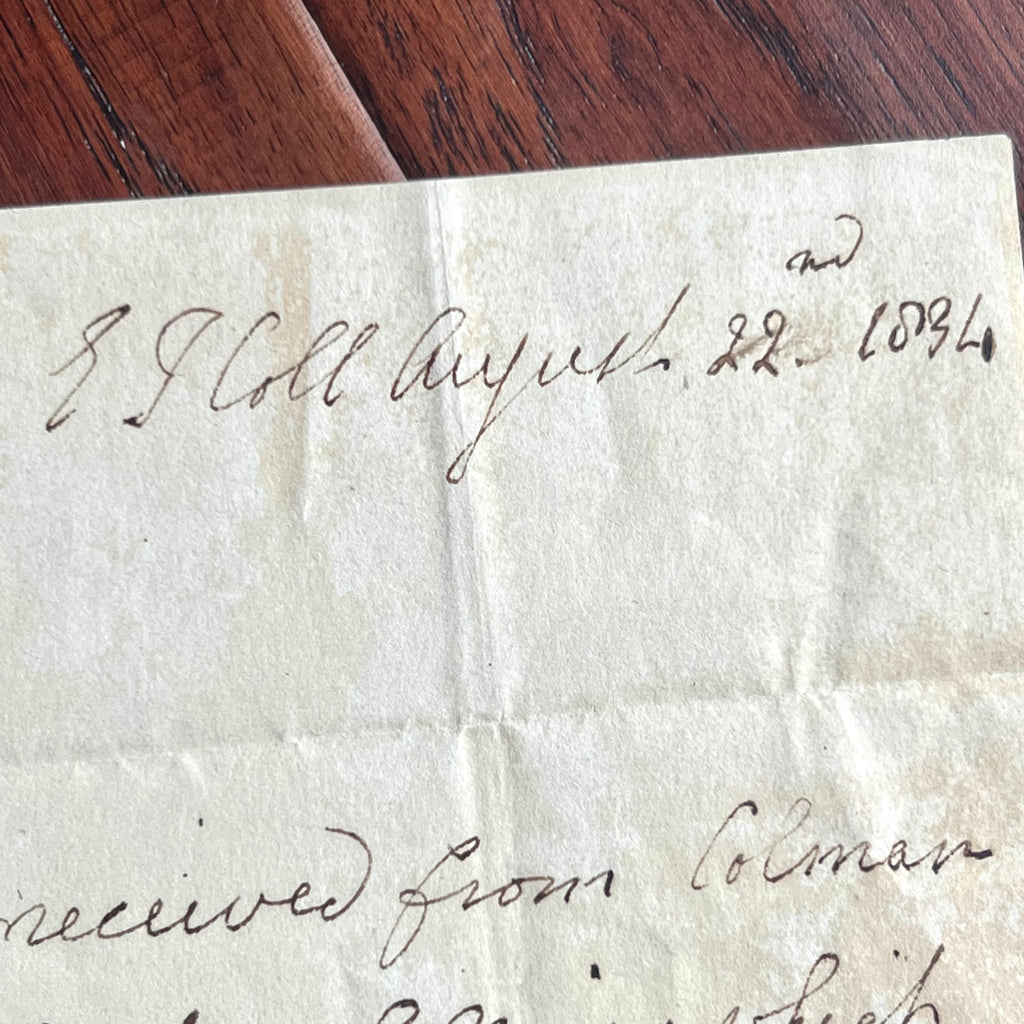 E I Coll August 22nd 1834
received from Colman
which